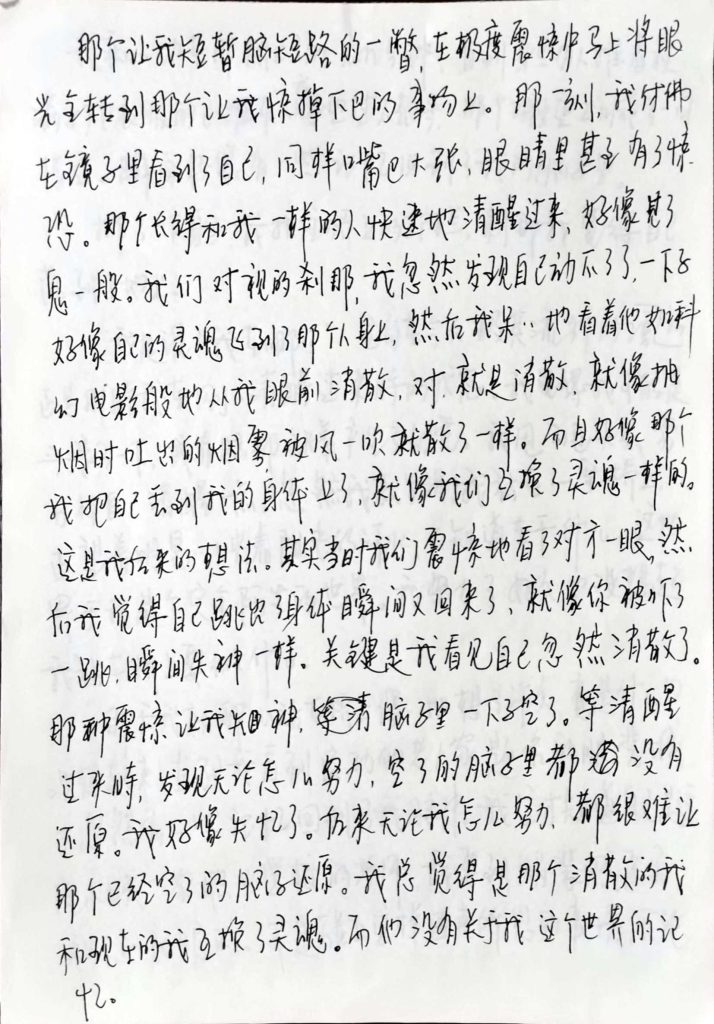 那个让我短暂脑短路的一瞥,在极度震惊中马上将眼
光全转到那个让我惊掉下巴的事物上。那一刻,我仿佛
在镜子里看到了自己,同样嘴巴大张,眼睛里甚至有了惊
恐。那个长得和我一样的人快速地清醒过来,好像见了
鬼一般。我们对视的刹那,我忽然发现自己动不了了,一下子
好像自己的灵魂飞到了那个人身上,然后我呆..地看着他如科
幻电影般地从我眼前消散,对,就是消散,就像抽
烟时吐出的烟雾,被风一吹就散了一样。而且好像那个
我把自己丢到我的身体上了,就像我们互换了灵魂一样的。
这是我后来的想法。其实当时我们震惊地看了对方一眼,然
后我觉得自己跳出了身体瞬间又回来了,就像你被吓了
一跳,瞬间失神一样。关键是我看见自己忽然消散了。
那种震惊让我失神,脑子里一下子空了。等清醒
过来时,发现无论怎么努力,空了的脑子里都没有
还原。我好像失忆了。后来无论我怎么努力,都很难让
那个已经空了的脑子还原。我总觉得是那个消散的我
和现在的我互换了灵魂。而他没有关于我这个世界的记
忆。